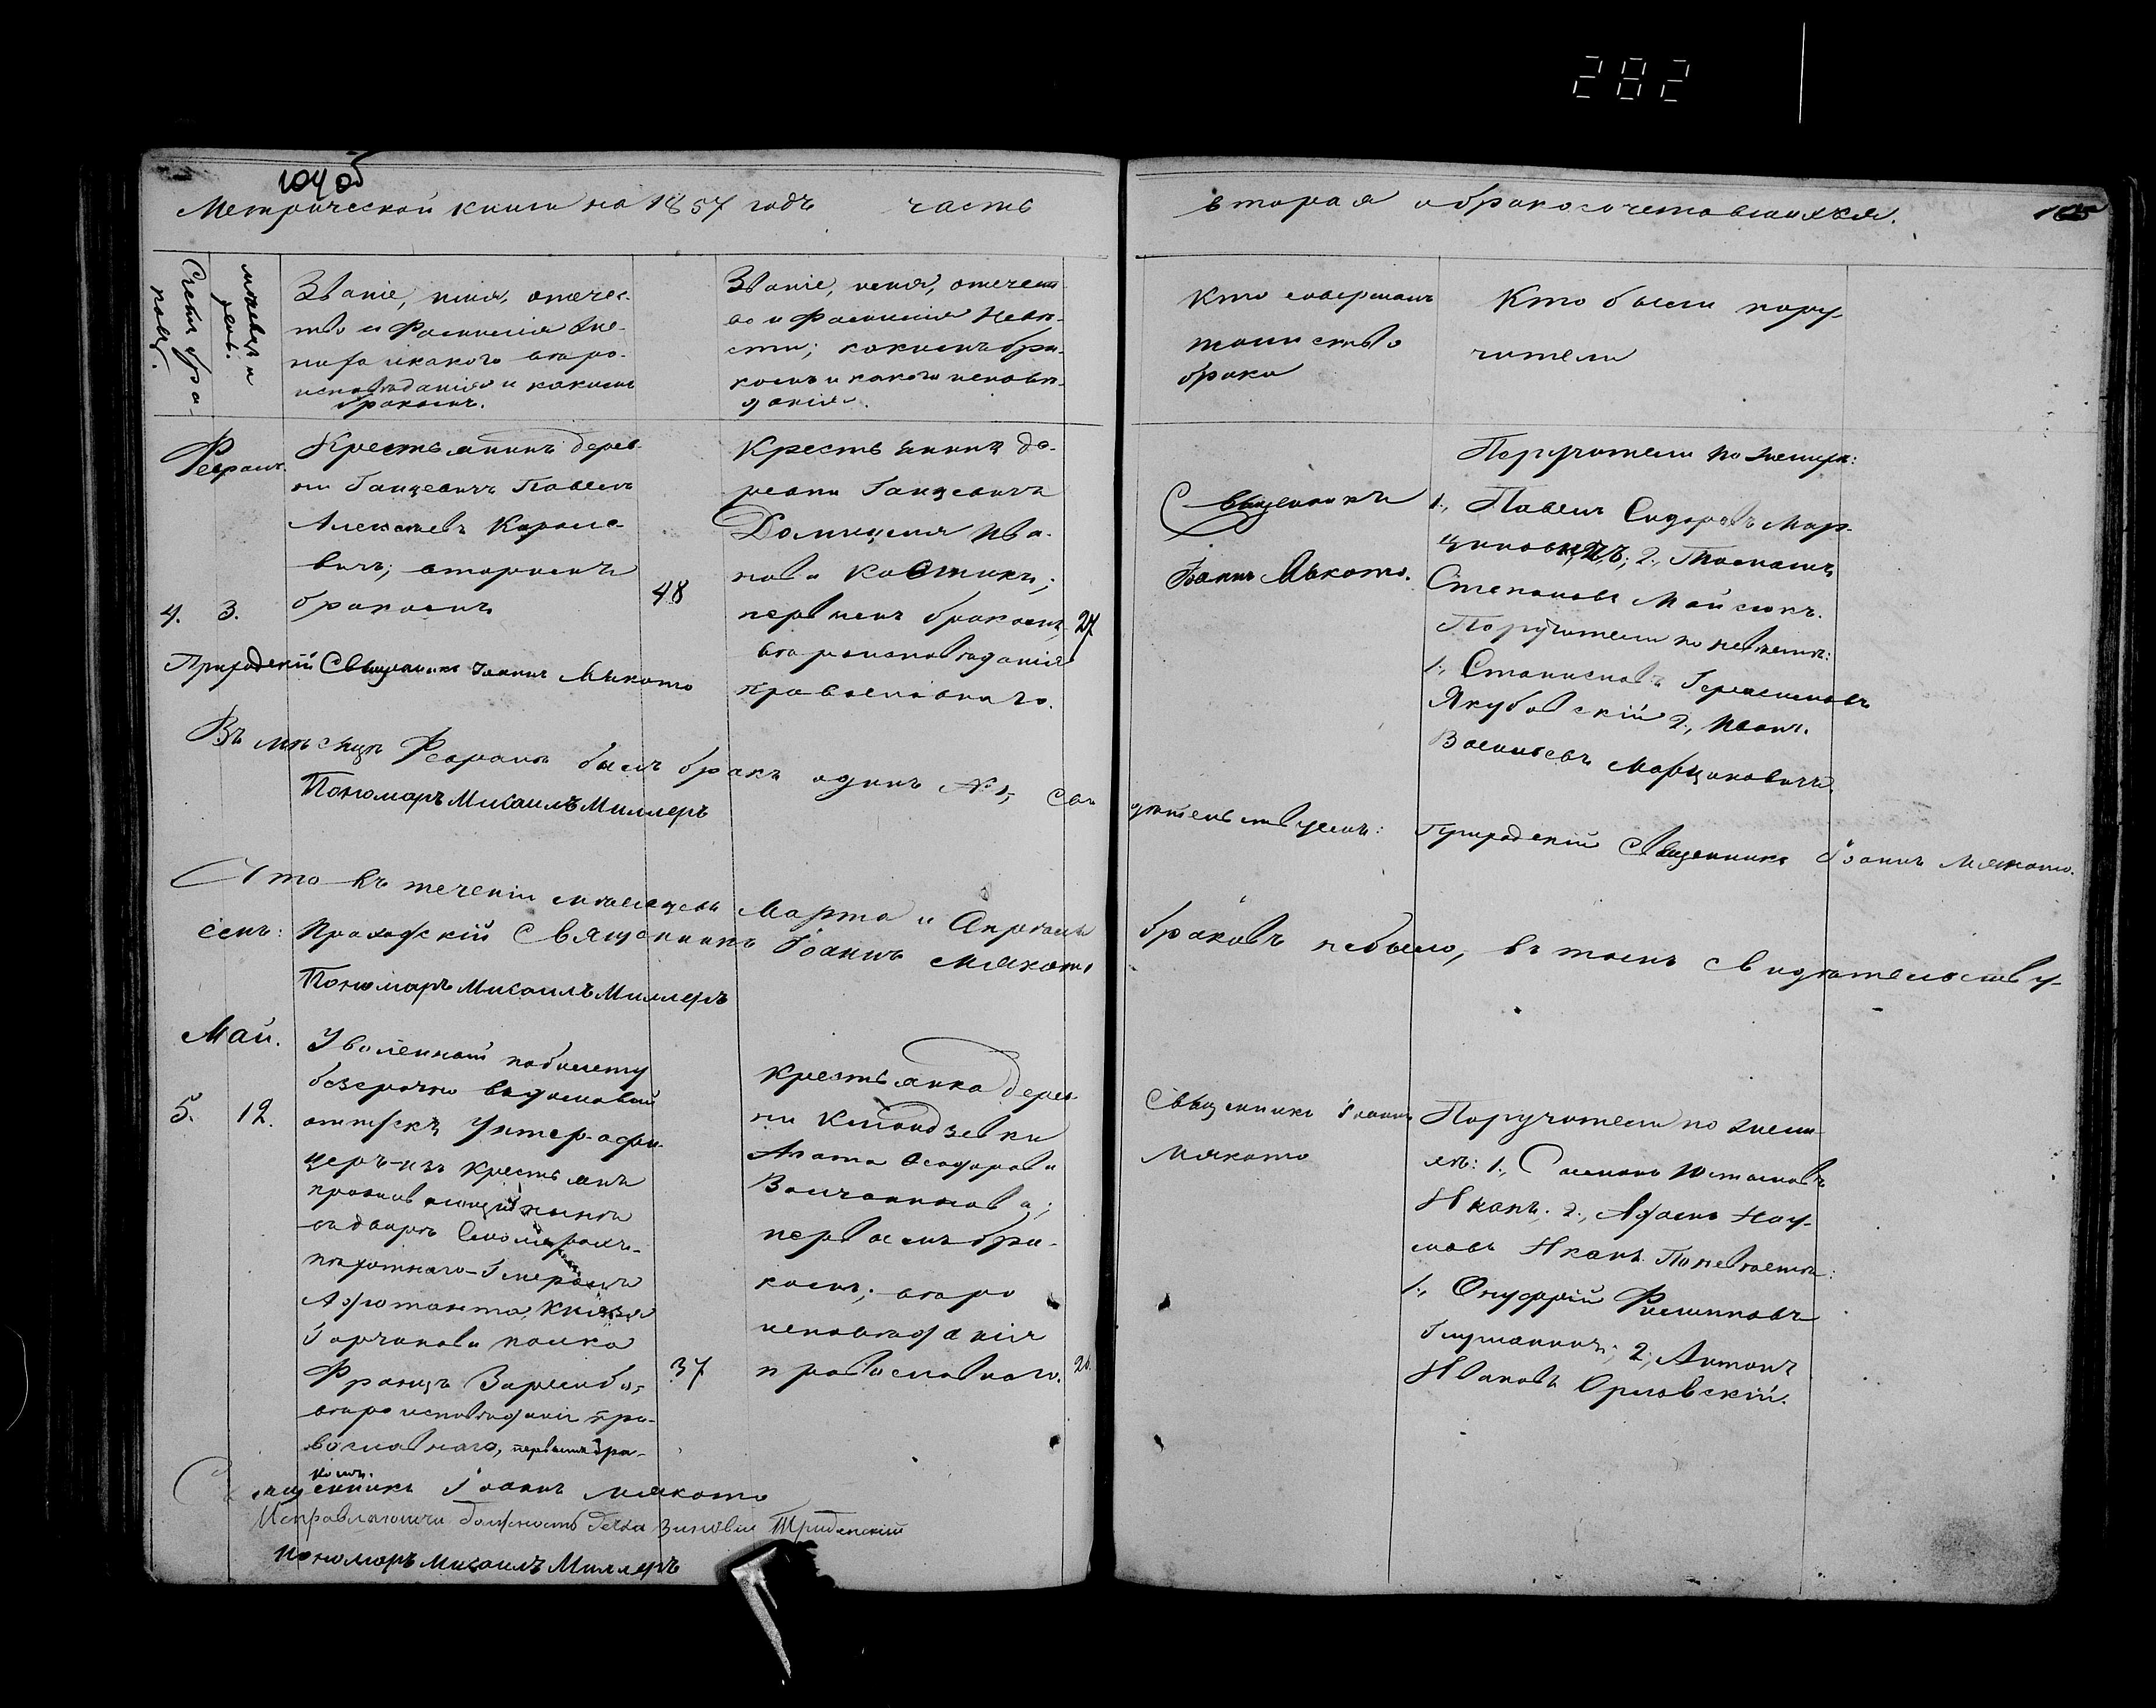 282
104 об
Метрической книги на 1857 годъ часть
вторая о бракосочетавшихся.
105
Счетъ бра-
ковъ.
Мѣсяцъ и
день.
Званіе, имя, отечес-
тво и Фамилія Же-
ниха и какого вѣро-
исповѣданія и какимъ
бракомъ.
Званіе, имя, отечест-
во и Фамилія Невѣ-
сты; какимъ бра-
комъ и какого исповѣ-
данія.
Кто совершалъ
таинство
брака
Кто были пору-
чители
Февраль.
4. 3.
Крестьянинъ дерев-
ни Ганцевичъ Павелъ
Алексѣевъ Кароле-
вичъ; вторымъ
бракомъ
48
Крестьянка де-
ревни Ганцевичъ
Домицеля Ива-
нова
первымъ бракомъ,
вѣроисповѣданія
православнаго.
27
Священникъ
Іоаннъ Мякото.
Поручители по женихѣ:
1., Павелъ Сидоровъ Мар-
циновичъ; 2., Томашъ
Степановъ Майсюкъ.
Поручители по невѣстѣ:
1., Станиславъ Герасимовъ
Якубовскій 2., Иванъ
Васильевъ Марциновичъ.
Священникъ Іоаннъ Мякото
Въ мѣсяцѣ Февралѣ былъ бракъ одинъ № 1, Сви
дѣтельствуемъ: Священникъ Іоаннъ Мякото.
Пономаръ Михаилъ Миллеръ
Что въ теченіи мѣсяцевъ Марта и Апрѣля
браковъ небыло, въ томъ свидѣтельству-
емъ: Приходскій Священникъ Іоаннъ Мякото
Пономаръ Михаилъ Миллеръ
Май.
5. 12.
Уволенный по билету
безсрочно въ домовый
отпускъ Унтер-офи-
церъ-изъ Крестьянъ
пѣхотнаго-Генералъ
Адютанта, Князя
Горчакова полка
Францъ
вѣроисповѣданія пра-
вославнаго, первымъ бра-
комъ.
37
Крестьянка дерев-
ни
Агата Феодорова
первымъ бра-
комъ; вѣро
исповѣданія
православнаго.
26.
Священникъ Іоаннъ
Мякото
Поручители по жени-
хѣ: 1.,
2., Адамъ Нау-
мовъ По невѣстѣ:
1., Онуфрій Филиповъ
2., Антонъ
Ивановъ Орловскій.
Священникъ Іоаннъ Мякото
Исправляющи должность Дьяка
Пономаръ Михаилъ Миллеръ